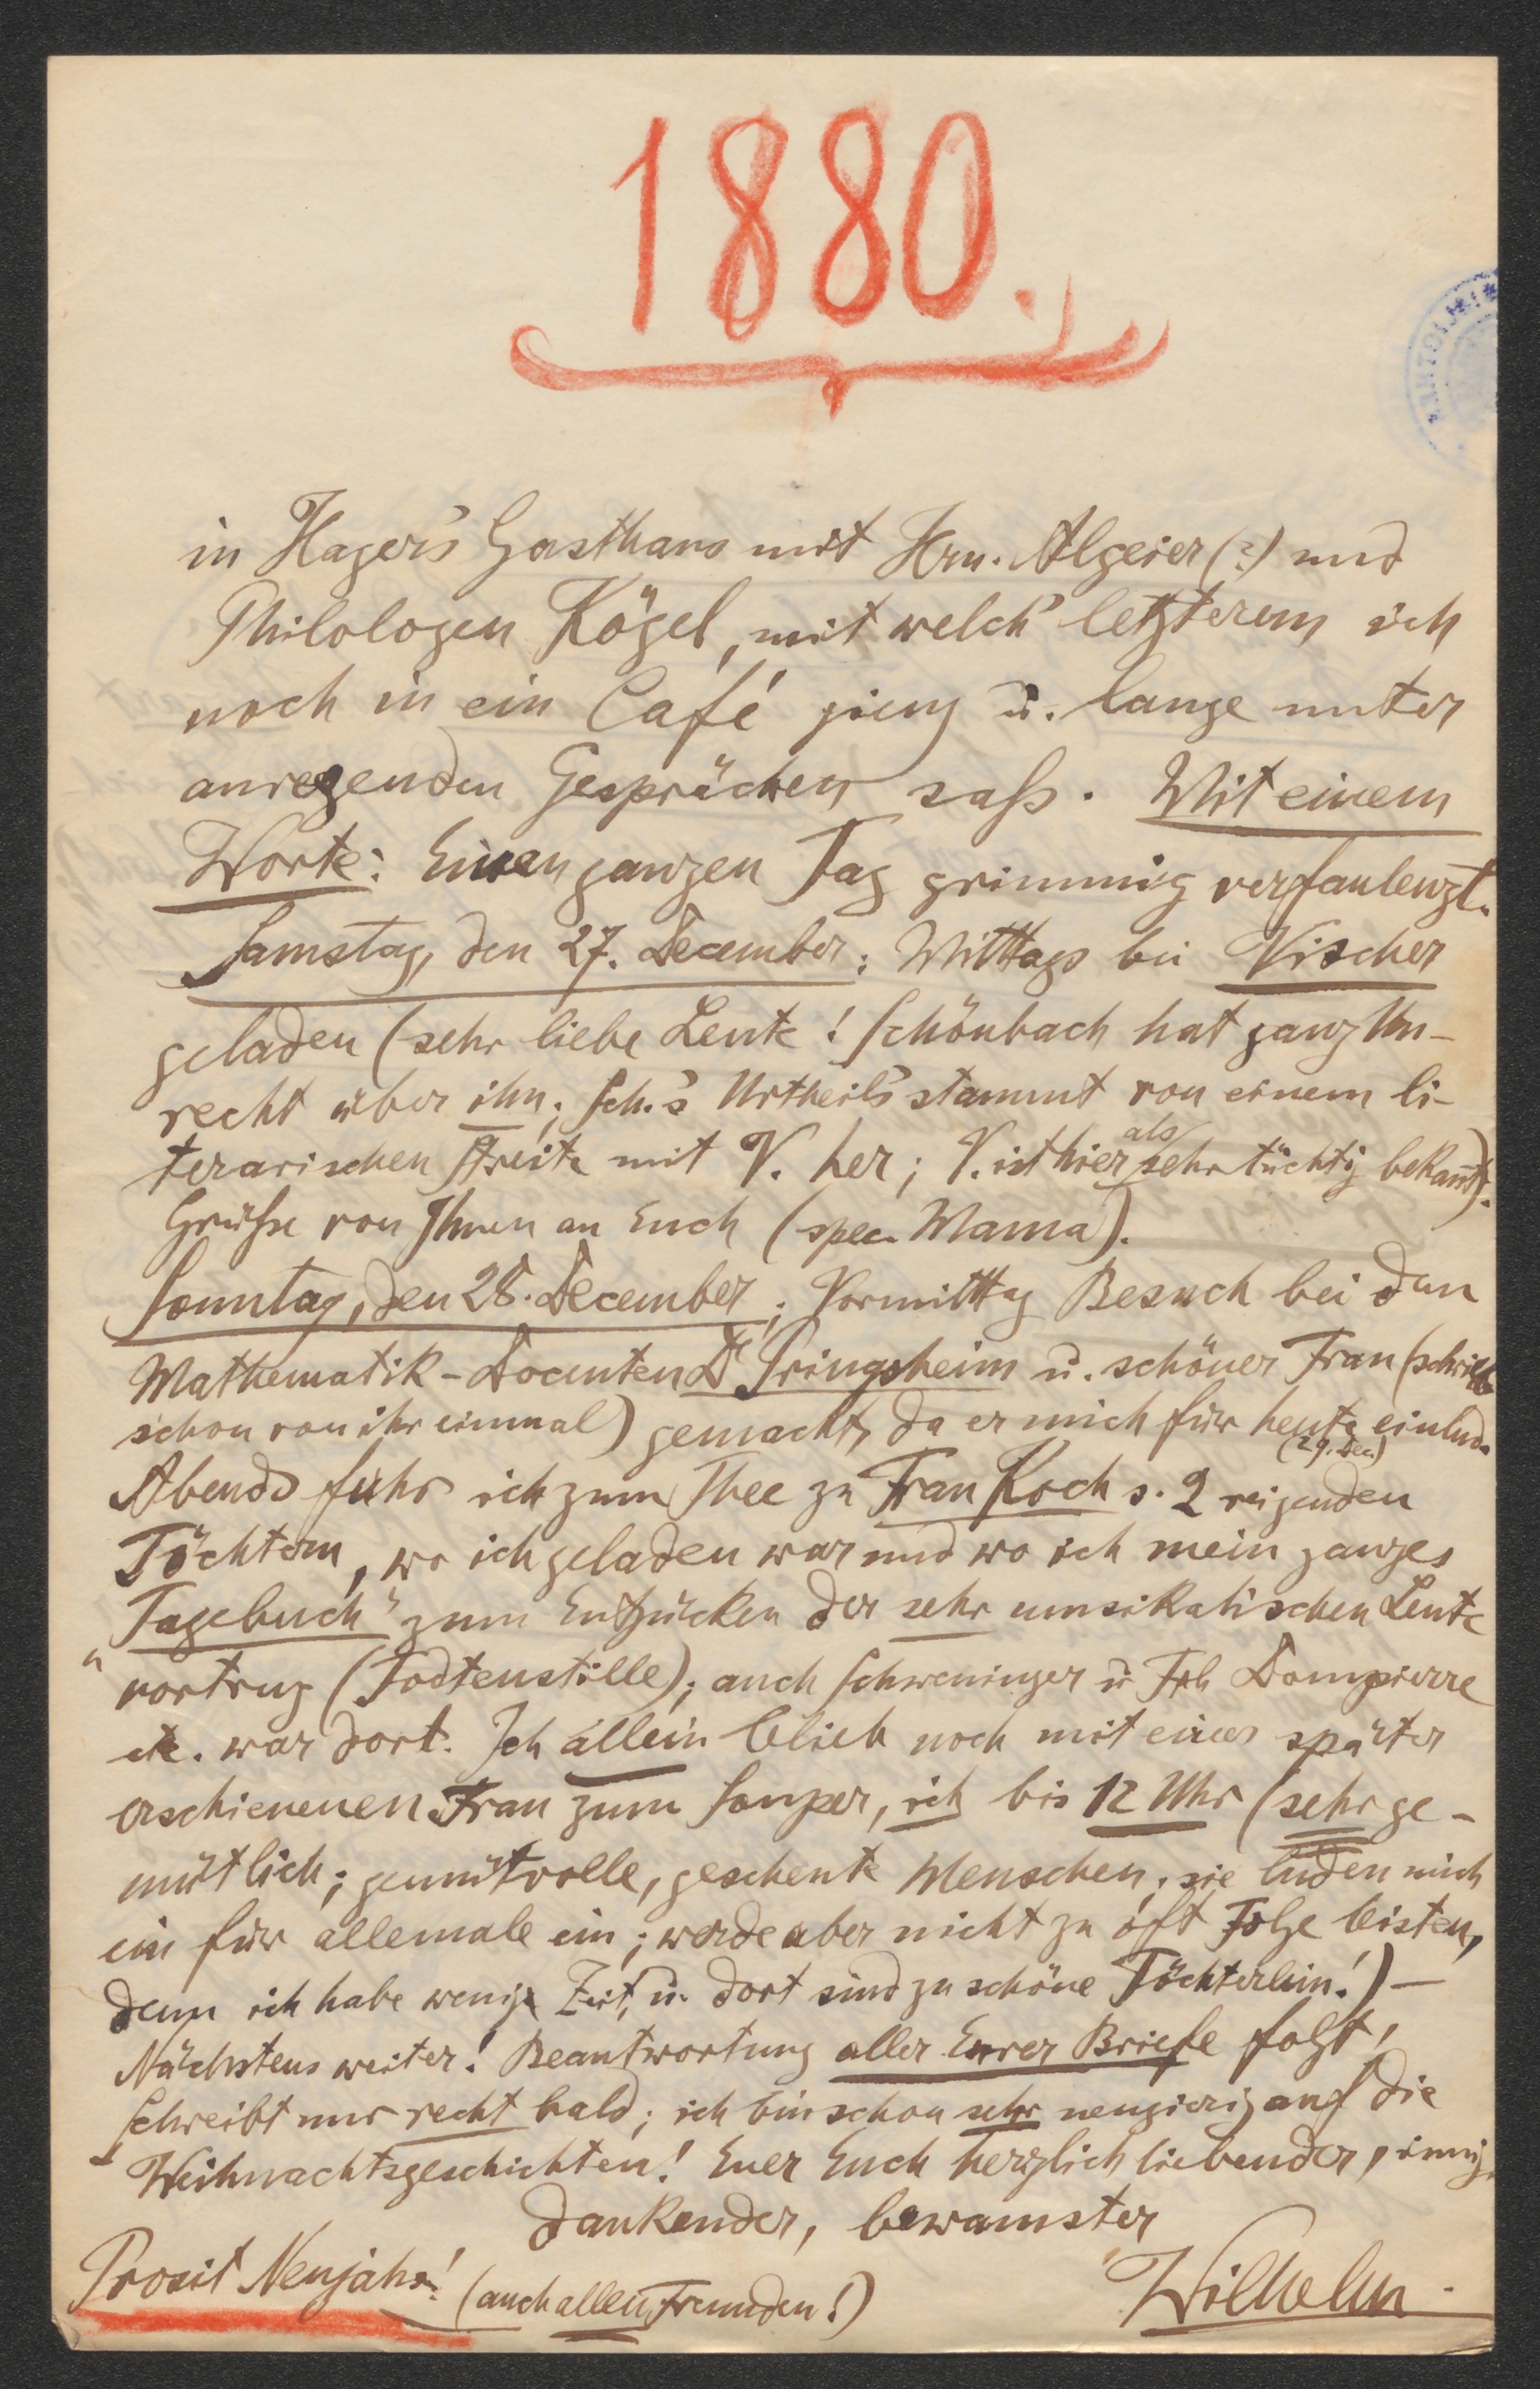 1880.
in Hager's Gasthaus mit Hrn. Algeier (?) und
Philologen Kögel, mit welch' letzterem ich
noch in ein Café gieng u. lange unter
anregenden Gesprächen saß. Mit einem
Worte: Einen ganzen Tag grimmig verfaulenzt.
Samstag, den 27. December: Mittags bei Vischer
geladen (sehr liebe Leute! Schönbach hat ganz Un-
recht über ihn; Sch.'s Urtheil stammt von einem li-
terarischen Streite mit V. her; V. ist hier als sehr tüchtig bekannt).
Grüße von Ihnen an Euch (spec. Mama).
Sonntag, den 28. December; Vormittag Besuch bei dem
Mathematik-Docenten Dr Pringsheim u. schöner Frau (schrieb
schon von ihr einmal) gemacht, da er mich für heute (29. Dec.) einlud.
Abends fuhr ich zum Thee zu Frau Koch s. 2 reizenden
Töchtern, wo ich geladen war und wo ich mein ganzes
"Tagebuch" zum Entzücken der sehr musikalischen Leute
vortrug (Todtenstille); auch Schweninger u Frh Dompierre
etc. war dort. Ich allein blieb noch mit einer später
erschienenen Frau zum Souper, ich bis 12 Uhr (sehr ge-
mütlich; gemütvolle, gescheute Menschen; sie luden mich
ein für allemale ein; werde aber nicht zu oft Folge leisten,
denn ich habe wenig Zeit, u. dort sind zu schöne Töchterlein!) —
Nächstens weiter! Beantwortung aller Eurer Briefe folgt,
Schreibt nur recht bald; ich bin schon sehr neugierig auf die
Weihnachtsgeschichten! Euer Euch herzlich liebender, innig
dankender, bewamster
Prosit Neujahr! (auch allen Freunden!) Wilhelm